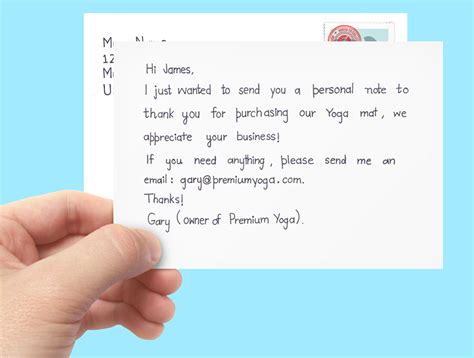 Hi James,
I just wanted to send you a personal note to
thank you for purchasing our Yoga mat, we
appreciate your business!
If you need anything, please send me an
email: gary@premiumyoga.com.
Thanks!
Gary (owner of Premium Yoga).